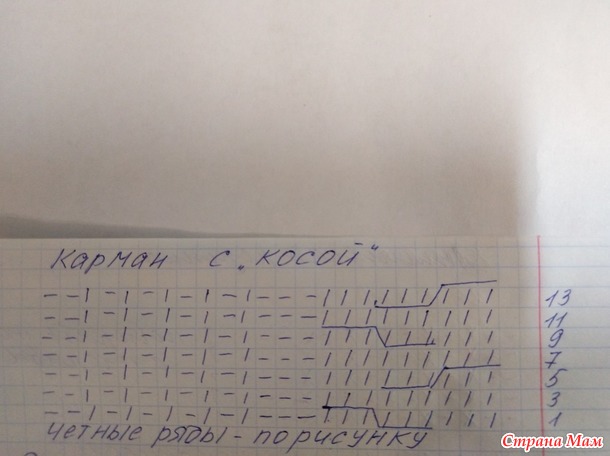 Карман с „косой“
13
11
9
7
5
3
1
четные ряды - по рисунку
Страна Мам